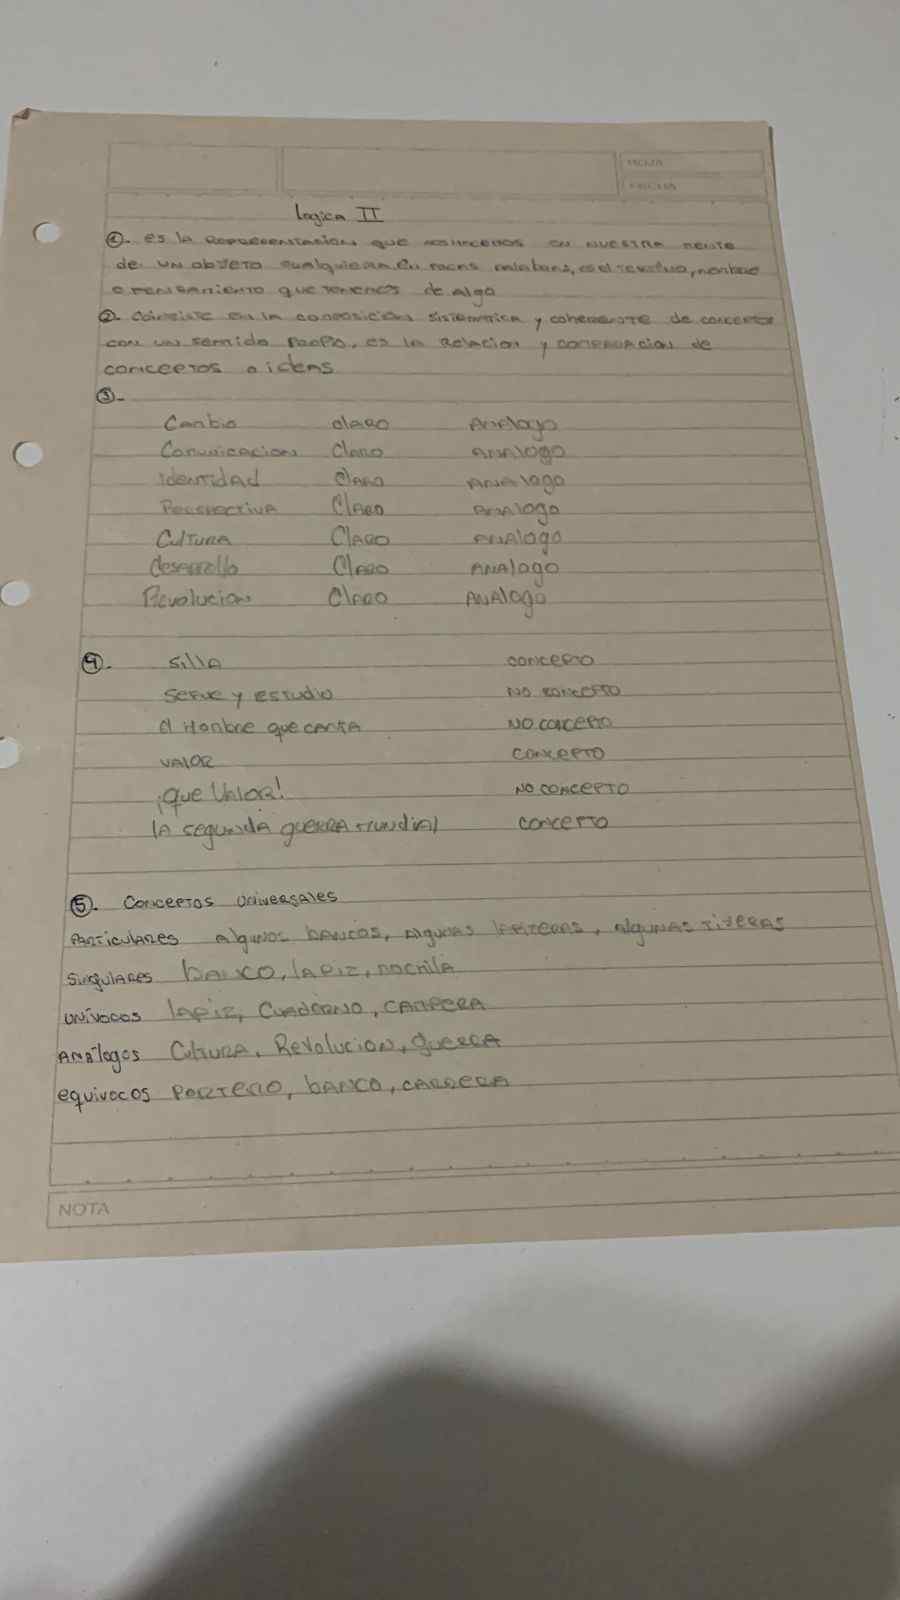 FECHA
Logica II
①. es la Representacion que hacemos en nuestra mente
de un objeto cualquiera. En pocas palabras, es el nombre
o pensamiento que tenemos de algo
②. Consiste en la composicion sistematica y coherente de conceptos
con un sentido Propio, es la Relacion y de
conceptos o ideas
③.
Cambio claro Analogo
Comunicacion Claro Analogo
Identidad Claro Analogo
Perspectiva Claro Analogo
Cultura Claro Analogo
desarrollo Claro Analogo
Revolucion Claro Analogo
④. Silla concepto
Serue y estudio No concepto
el Hombre que canta No concepto
Valor concepto
¡que Valor! No concepto
la segunda guerra mundial concepto
⑤. Conceptos universales
Particulares algunos bancos, algunas , algunas tijeras
Singulares banco, lapiz, mochila
unívocos lapiz, Cuaderno, carpera
Análogos Cultura, Revolucion, guerra
equivocos Porteño, banco, carrera
NOTA